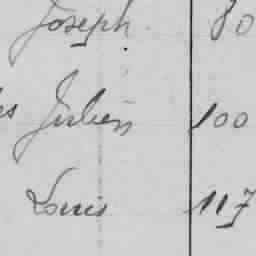 Joseph 80
Julien 100
Louis 117